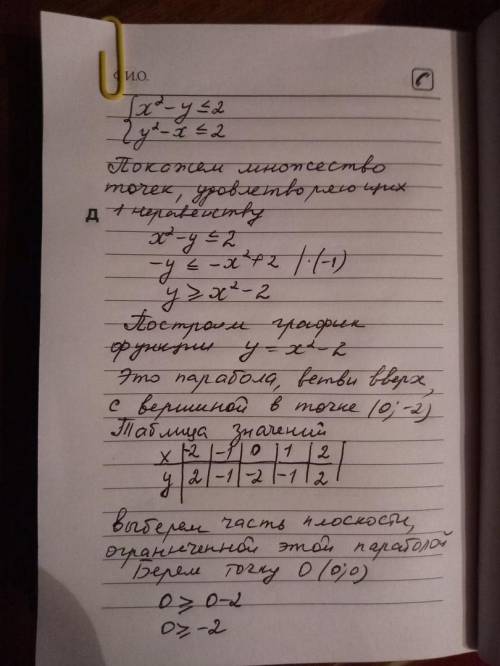 Ф.И.О.
{x² - y ≤ 2
{y² - x ≤ 2
Покажем множество
точек, удовлетворяющих
Д
1 неравенству
x² - y ≤ 2
-y ≤ -x² + 2 | ·(-1)
y ⩾ x² - 2
Построим график
функции y = x² - 2
Это парабола, ветви вверх,
с вершиной в точке (0; -2)
Таблица значений
x | -2 | -1 | 0 | 1 | 2 |
y | 2 | -1 | -2 | -1 | 2 |
выберем часть плоскости,
ограниченной этой параболой
Берем точку O (0; 0)
0 ⩾ 0 - 2
0 ⩾ -2